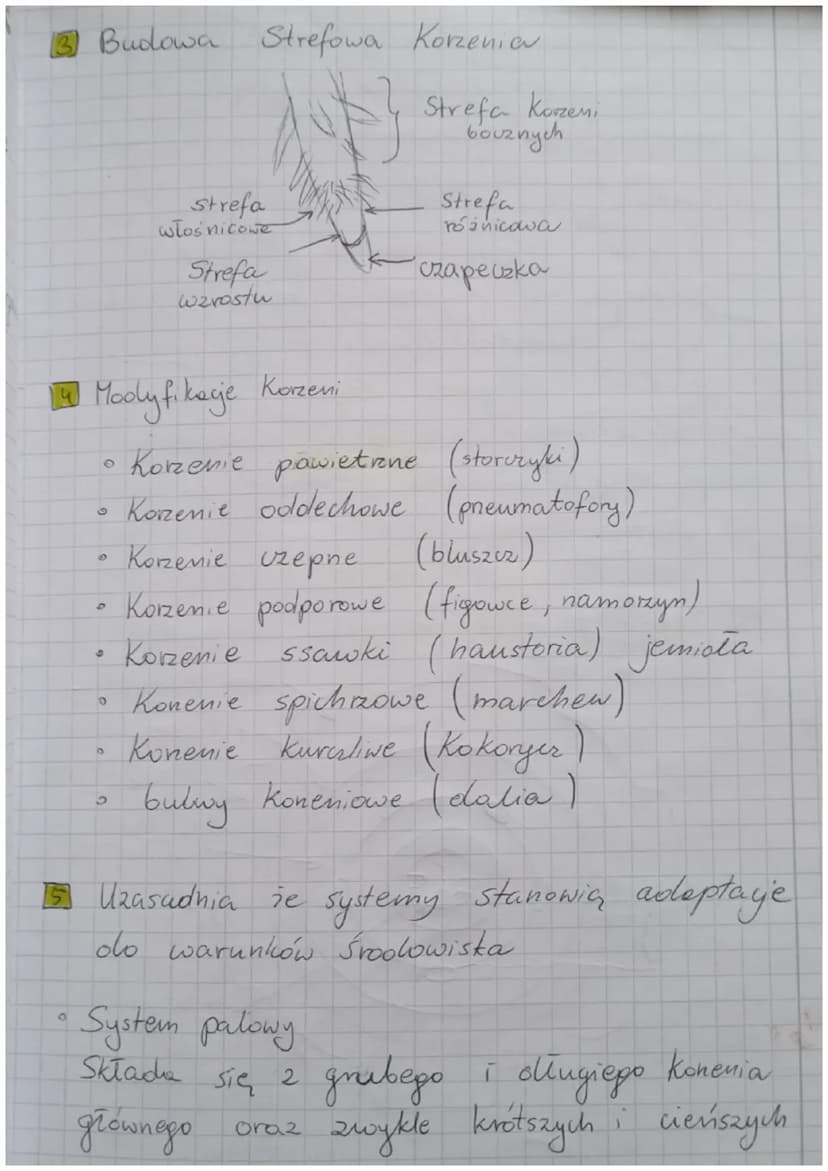 3 Budowa Strefowa Korzenia
Strefa Korzeni
bocznych
strefa
włośnicowe
Strefa
różnicowa
Strefa
wzrostu
czapeczka
4 Modyfikacje Korzeni
• Korzenie powietrzne (storczyki)
• Korzenie oddechowe (pneumatofory)
• Korzenie czepne (bluszcz)
• Korzenie podporowe (figowce, namorzyn)
• Korzenie ssawki (haustoria) jemioła
• Korzenie spichrzowe (marchew)
• Korzenie kurczliwe (Kokorycz)
• bulwy korzeniowe (dalia)
5 Uzasadnia że systemy stanowią adaptacje
do warunków środowiska
• System palowy
Składa się z grubego i długiego korzenia
głównego oraz zwykle krótszych i cieńszych